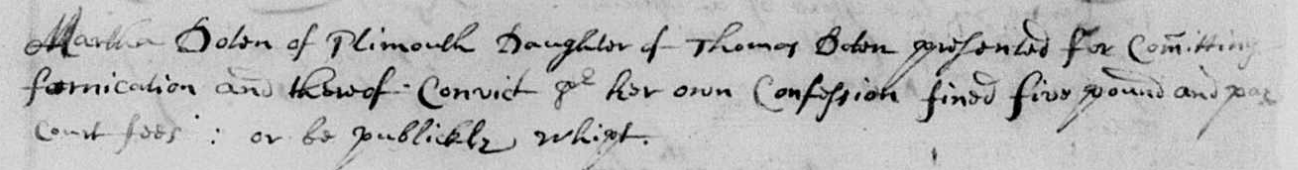 Martha Doten of Plimouth Daughter of Thomas Doten presented for Com̄itting
fornication and thereof Convict pr her own Confession fined five pound and pay
Court fees : or be publickly whipt.